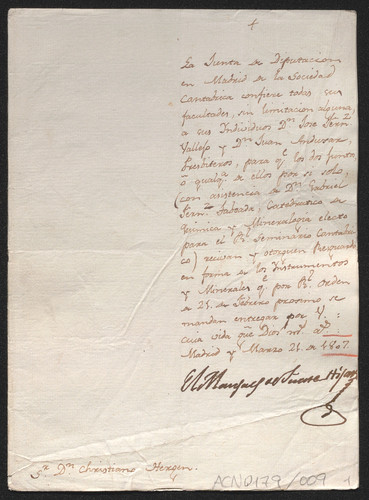 +
La Junta de Diputacion
en Madrid de la Sociedad
Cantabrica confiere todas sus
facultades, sin limitacion alguna,
a sus Individuos Dn. Jose Fernz.
Vallejo y Dn. Juan Andusar,
Presbiteros, para q.e los dos juntos,
ó qualq.a de ellos por si solo,
(con asistencia de Dn. Gabriel
Fern.z Taboada, Catedratico de
Quimica y Mineralogia electo
para el R.l Seminario Cantabri-
co) recivan y otorguen Resguardo
en forma de los Instrumentos
y Minerales q.e por R.l Orden
de 25. de Febrero proximo se
mandan entregar por V.:
cuya vida gue Dios m.s a.s
Madrid y Marzo 21. de 1807.
El Marques de Fuerte Hijar
Sr. Dn. Christiano Hergen.
ACN0179/009
1